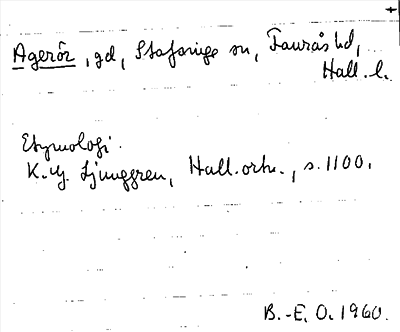 Agerör, gd, Stafsinge sn, Faurås hd,
Hall. l.
Etymologi.
K.G. Ljunggren, Hall. ortn., s. 1100.
B.-E. O. 1960.